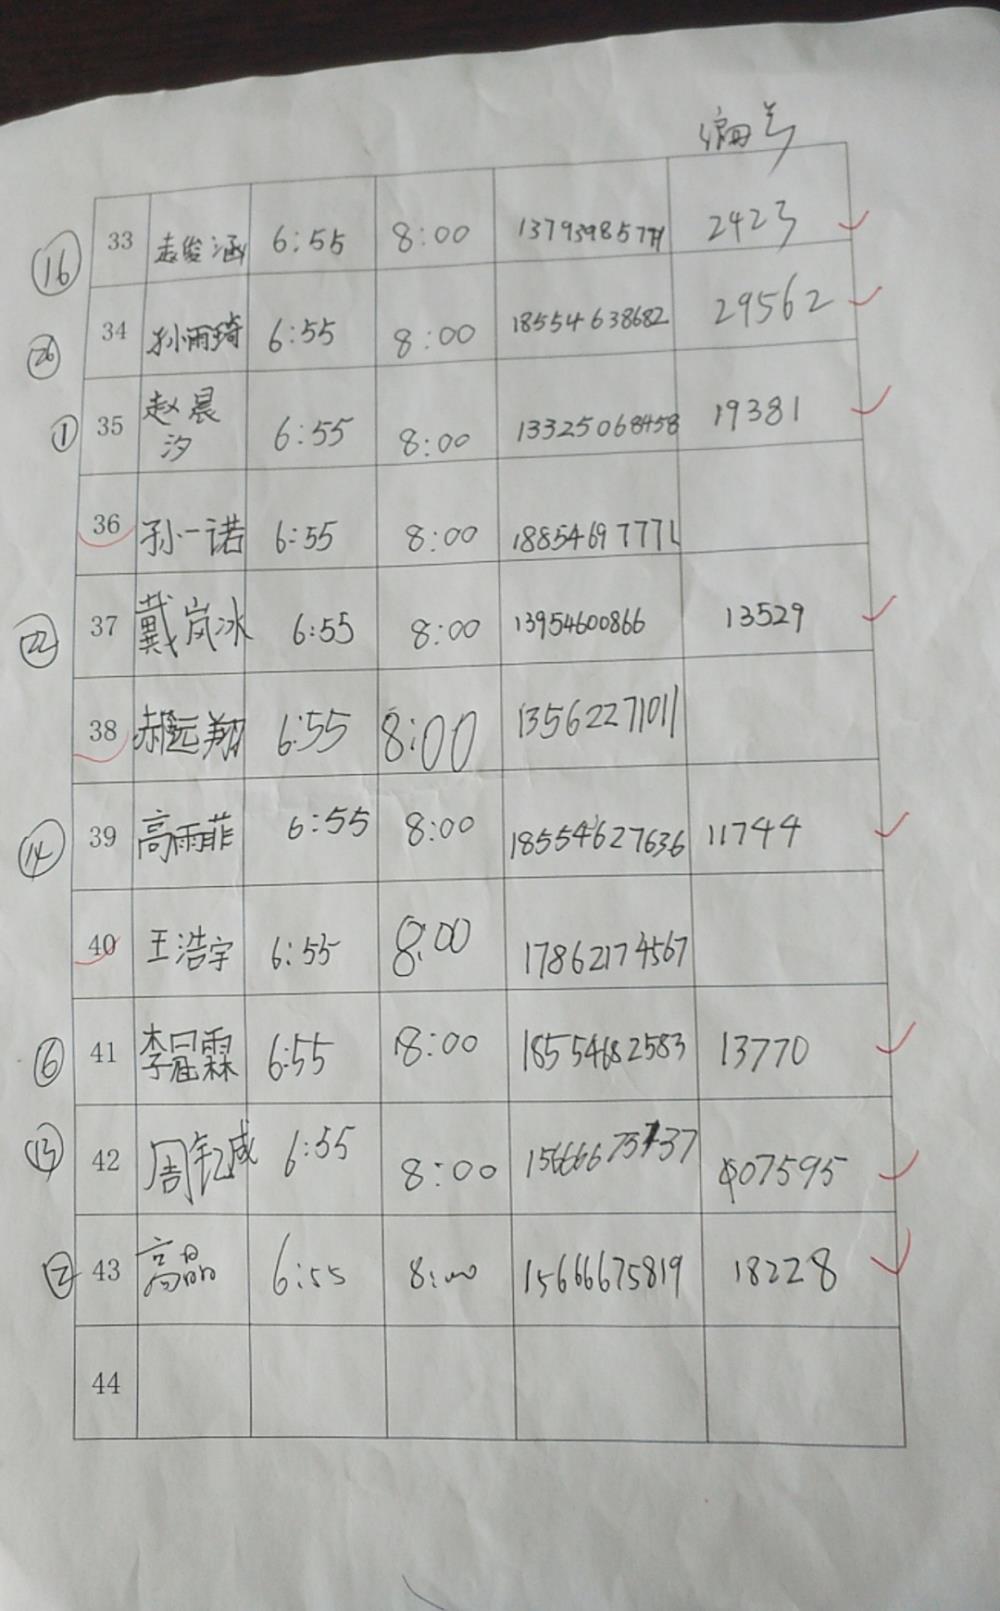 编号
⑯ 33 赵俊涵 6:55 8:00 2423
㉖ 34 孙雨琦 6:55 8:00 18554638682 29562
① 35 赵晨汐 6:55 8:00 13325068458 19381
36 孙一诺 6:55 8:00 18854697771
㉒ 37 戴岚冰 6:55 8:00 13954600866 13529
38 郝远翔 6:55 8:00 13562271011
⑭ 39 高雨菲 6:55 8:00 18554627636 11744
40 王浩宇 6:55 8:00 17862174567
⑥ 41 李冠霖 6:55 8:00 18554682583 13770
⑬ 42 周钇成 6:55 8:00 15666675737 07595
⑫ 43 高晶 6:55 8:00 15666675819 18228
44